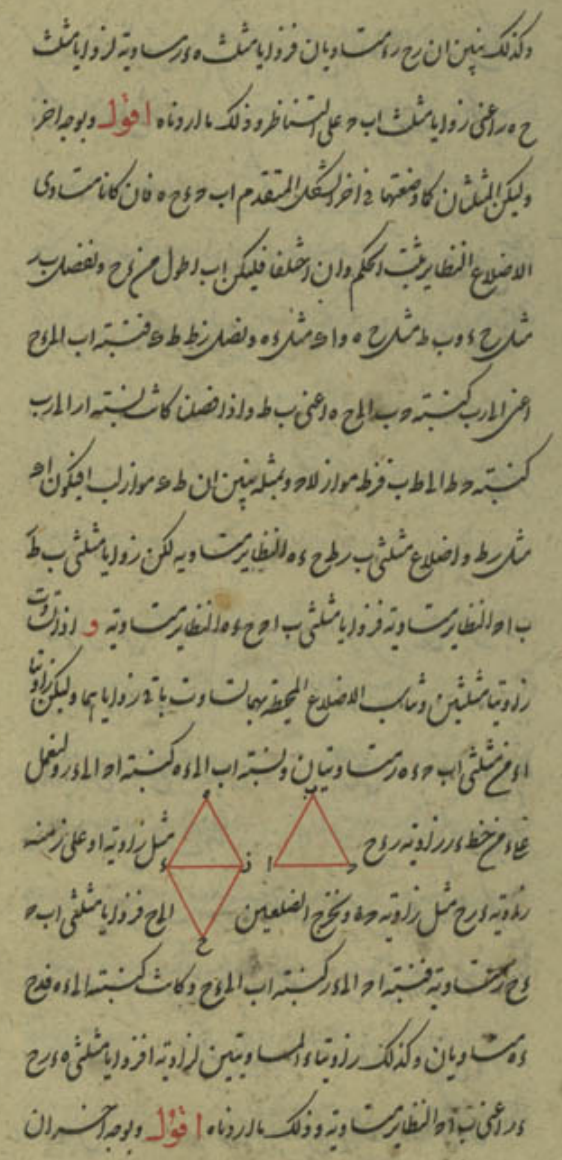 وكذلك نبين ان رح ره متساويان فزوايا مثلث ه ء ر مساوية لزوايا مثلث
ح ء ر اعنى زوايا مثلث اب ح على التناظر وذلك ما اردناه اقول وبوجه اخر
وليكن المثلثان كما وضعتهما فى اخر الشكل المتقدم اب ح ء ح ه فان كانا متساوى
الاضلاع النظاير ثبت الحكم وان اختلفا فليكن اب اطول من ء ح ونفصل ب ر
مثل ح ء و ب ط مثل ح ه و اح مثل ء ه ونصل رط ط ح فنسبة اب الى ء ح
اعنى الى رب كنسبة ح ب الى ح ه اعنى ب ط واذا فصلنا كانت نسبة ار الى رب
كنسبة ح ط الى ط ب فرط مواز لاح وبمثله نبين ان ط ح مواز لب ا فيكون اح
مثل رط واضلاع مثلثى ب رط ح ء ه النظاير متساوية لكن زوايا مثلثى ب ط ر
ب اح النظاير متساوية فزوايا مثلثى ب اح ح ء ه النظاير متساوية و اذا تساوت
زاويتا مثلثين وتناسب الاضلاع المحيطة بهما تساوت باقى زواياهما وليكن زاويتا
ا ء من مثلثى اب ح ء ه ر متساويتان ونسبة اب الى ء ه كنسبة اح الى ء ر ولنعمل
على ء من خط ء ر زاوية ر ء ح مثل زاوية ا وعلى ر منه
زاوية ء ر ح مثل زاوية ح ه ونخرج الضلعين الى ح فزوايا مثلثى اب ح
ء ح ر متساوية فنسبة اح الى ء ر كنسبة اب الى ء ح وكانت كنسبته الى ء ه ف ء ح
ء ه متساويان وكذلك زاويتا ء المساويتين لزاوية ا فزوايا مثلثى ه ء ر ح
ء ر اعنى ب اح النظاير متساوية وذلك ما اردناه اقول وبوجه اخر ان